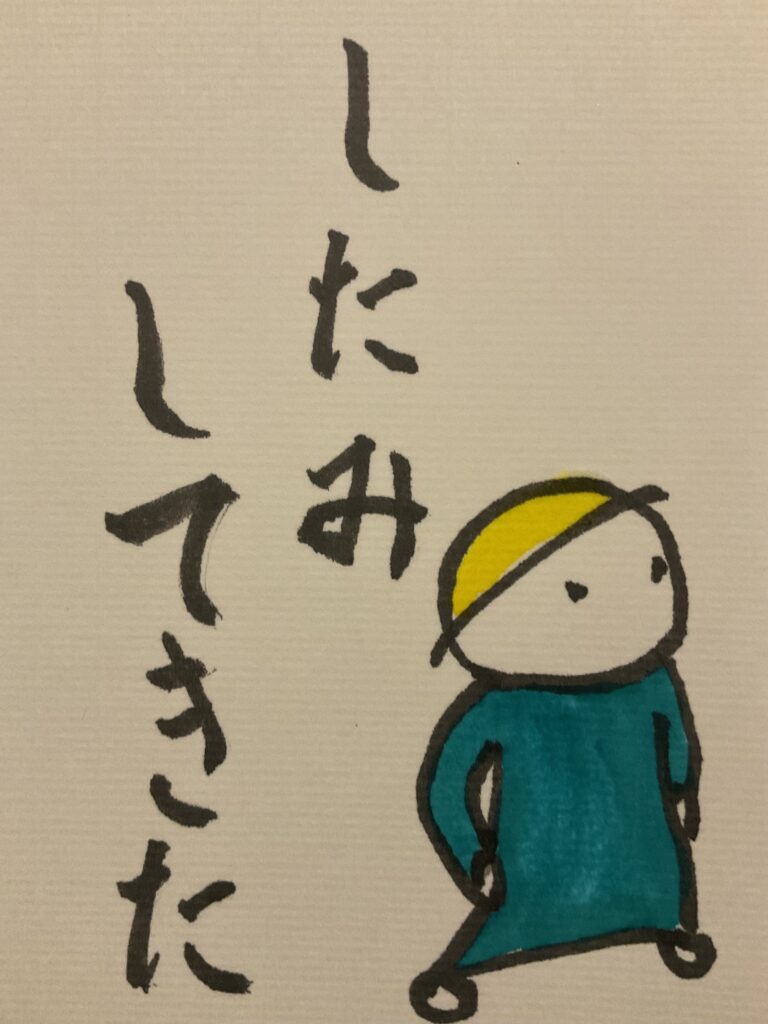 したみ
してきた